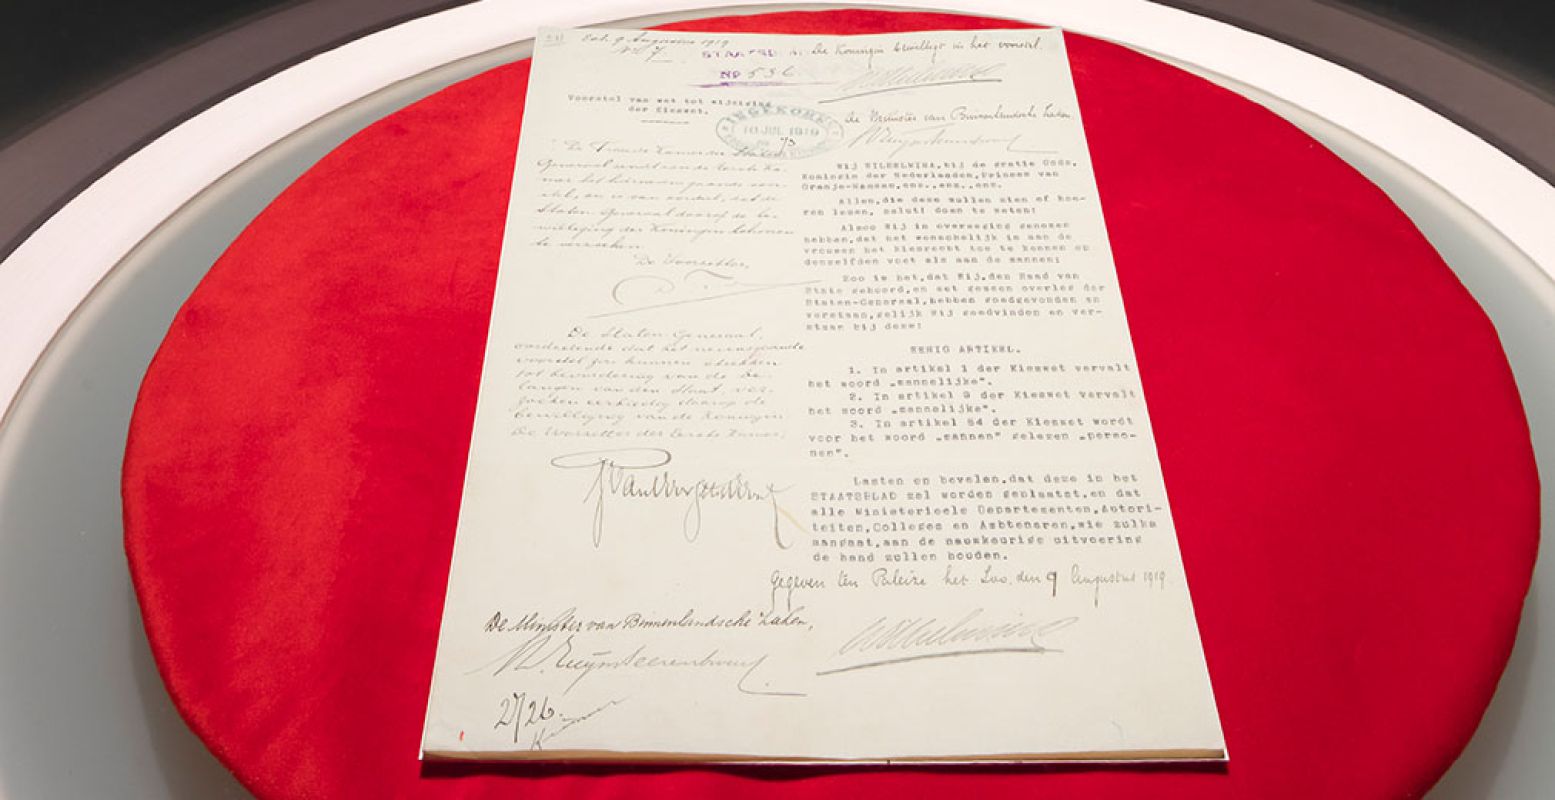 Exh. 9 Augustus 1919
No. 7.
STAATSBL.
No 536
De Koningin bewilligt in het voorstel.
Wilhelmina
Voorstel van wet tot wijziging
der Kieswet.
INGEKOMEN
10 JUL 1919
De Minister van Binnenlandsche Zaken,
De Tweede Kamer der Staten
Generaal zendt aan de Eerste Ka-
mer het hiernevensgaande voor-
stel, en is van oordeel, dat de
Staten-Generaal daarop de be-
williging der Koningin behooren
te verzoeken.
De Voorzitter,
De Staten-Generaal,
oordeelende dat het nevensgaande
voorstel zou kunnen strekken
tot bevordering van de be-
langen van den Staat, ver-
zoeken eerbiedig daarop de
bewilliging van de Koningin
De Voorzitter der Eerste Kamer,
Wij WILHELMINA, bij de gratie Gods,
Koningin der Nederlanden, Prinses van
Oranje-Nassau, enz., enz., enz.
Allen, die deze zullen zien of hoo-
ren lezen, salut! doen te weten:
Alzoo Wij in overweging genomen
hebben, dat het wenschelijk is aan de
vrouwen het kiesrecht toe te kennen op
denzelfden voet als aan de mannen;
Zoo is het, dat Wij, den Raad van
State gehoord, en met gemeen overleg der
Staten-Generaal, hebben goedgevonden en
verstaan, gelijk Wij goedvinden en ver-
staan bij deze:
EENIG ARTIKEL.
1. In artikel 1 der Kieswet vervalt
het woord „mannelijke".
2. In artikel 9 der Kieswet vervalt
het woord „mannelijke".
3. In artikel 84 der Kieswet wordt
voor het woord „mannen" gelezen „perso-
nen".
Lasten en bevelen, dat deze in het
STAATSBLAD zal worden geplaatst, en dat
alle Ministerieele Departementen, Autori-
teiten, Colleges en Ambtenaren, wie zulks
aangaat, aan de nauwkeurige uitvoering
de hand zullen houden.
Gegeven ten Paleize het Loo, den 9 Augustus 1919.
Wilhelmina
De Minister van Binnenlandsche Zaken,
27/26.